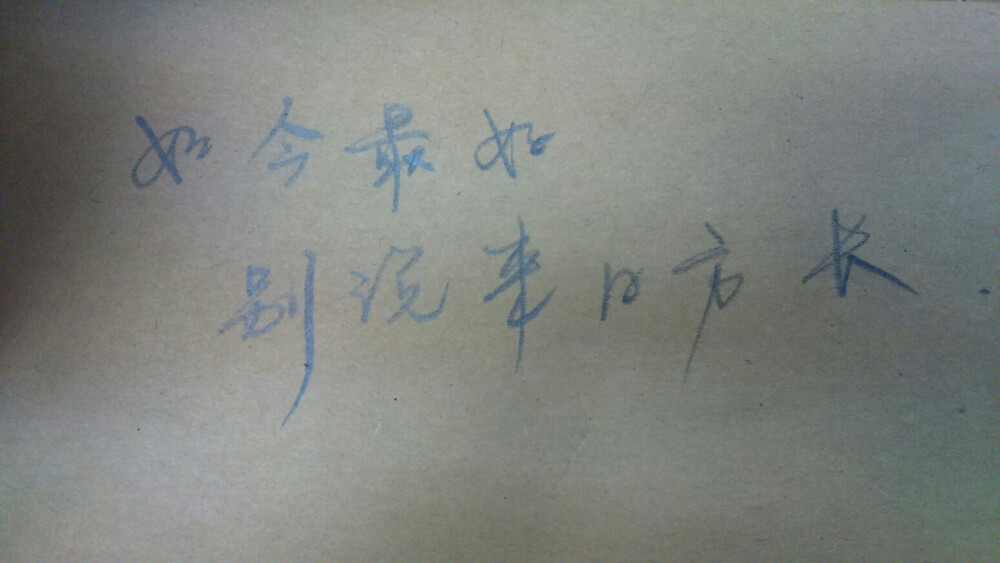 如今最好
别说来日方长.